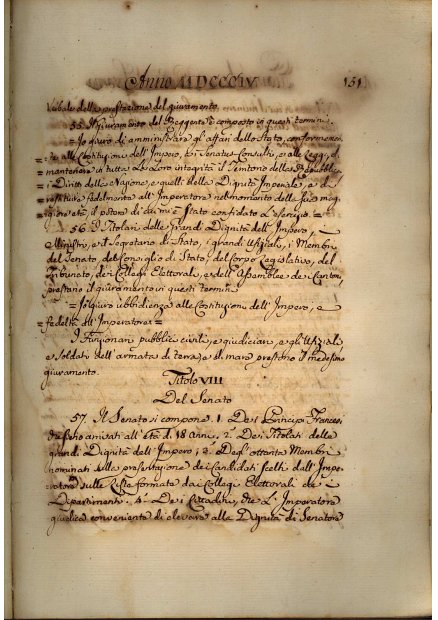 Anno MDCCCIV 151
Verbale della prestazione del giuramento.
55. Il Giuramento del Reggente è composto in questi termini.
= Io giuro di amministrare gl'affari dello Stato, conformemen-
= te alle Costituzioni dell'Impero, ai Senatus-Consulti, e alle Leggi, di
= mantenere in tutta la loro integrità il Territorio della Repubblica
= i Diritti della Nazione, e quelli della Dignità Imperiale, e di
= restituire fedelmente all'Imperatore nel momento della sua mag-
= giore età il potere di cui mi è stato confidato l'esercizio. =
56. I Titolari delle grandi Dignità dell'Impero, i
Ministri, e il Segretario di Stato, i grandi Ufiziali, i Membri
del Senato, del Consiglio di Stato, del Corpo Legislativo, del
Tribunato, dei Collegi Elettorali, e dell'Assemblee de Cantoni,
prestano il giuramento in questi termini
= Io giuro ubbidienza alle Costituzioni dell'Impero, e
= fedeltà all'Imperatore =
I Funzionari pubblici civili, e giudiciari, e gli Ufiziali
e Soldati dell'armata di terra, e di mare prestono il medesimo
giuramento.
Titolo VIII
Del Senato
57. Il Senato si compone. 1. Dei Principi Francesi
che sieno arrivati all'età di 18 anni, 2. Dei Titolati delle
grandi Dignità dell'Impero; 3. Degl'ottanta Membri
nominati sulla presentazione dei Candidati scelti dall'Impe-
ratore sulle Liste formate dai Collegi Elettorali dei
Dipartimenti. 4. Dei Cittadini, che l'Imperatore
giudica conveniente di elevare alla Dignità di Senatore